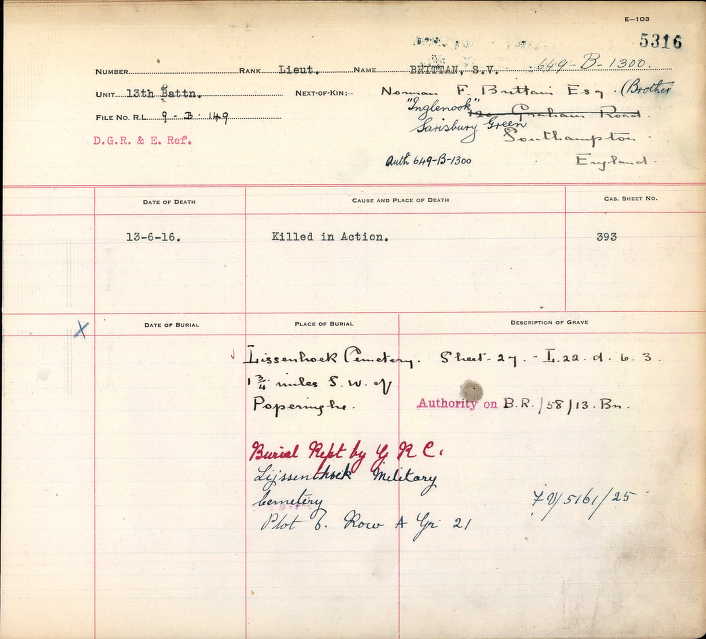 E-103
5316
NUMBER RANK Lieut. NAME BRITTAN, S.V. 649-B-1300.
UNIT 13th Battn. NEXT-OF-KIN:- Norman F. Brittain Esq (Brother
FILE NO. R.L. 9-B-149 "Inglenook" Graham Road.
D.G.R. & E. Ref. Sarisbury Green Southampton
Auth 649-B-1300 England.
DATE OF DEATH CAUSE AND PLACE OF DEATH CAS. SHEET NO.
13-6-16. Killed in Action. 393
X DATE OF BURIAL PLACE OF BURIAL DESCRIPTION OF GRAVE
Lissenhoek Cemetery. Sheet-27.-L.22.d.6.3.
1 3/4 miles S.W. of
Poperinghe. Authority on B.R./58/13.Bn.
Burial Rept by G R C.
Lijssenthoek Military
Cemetery
Plot 6. Row A Gr 21